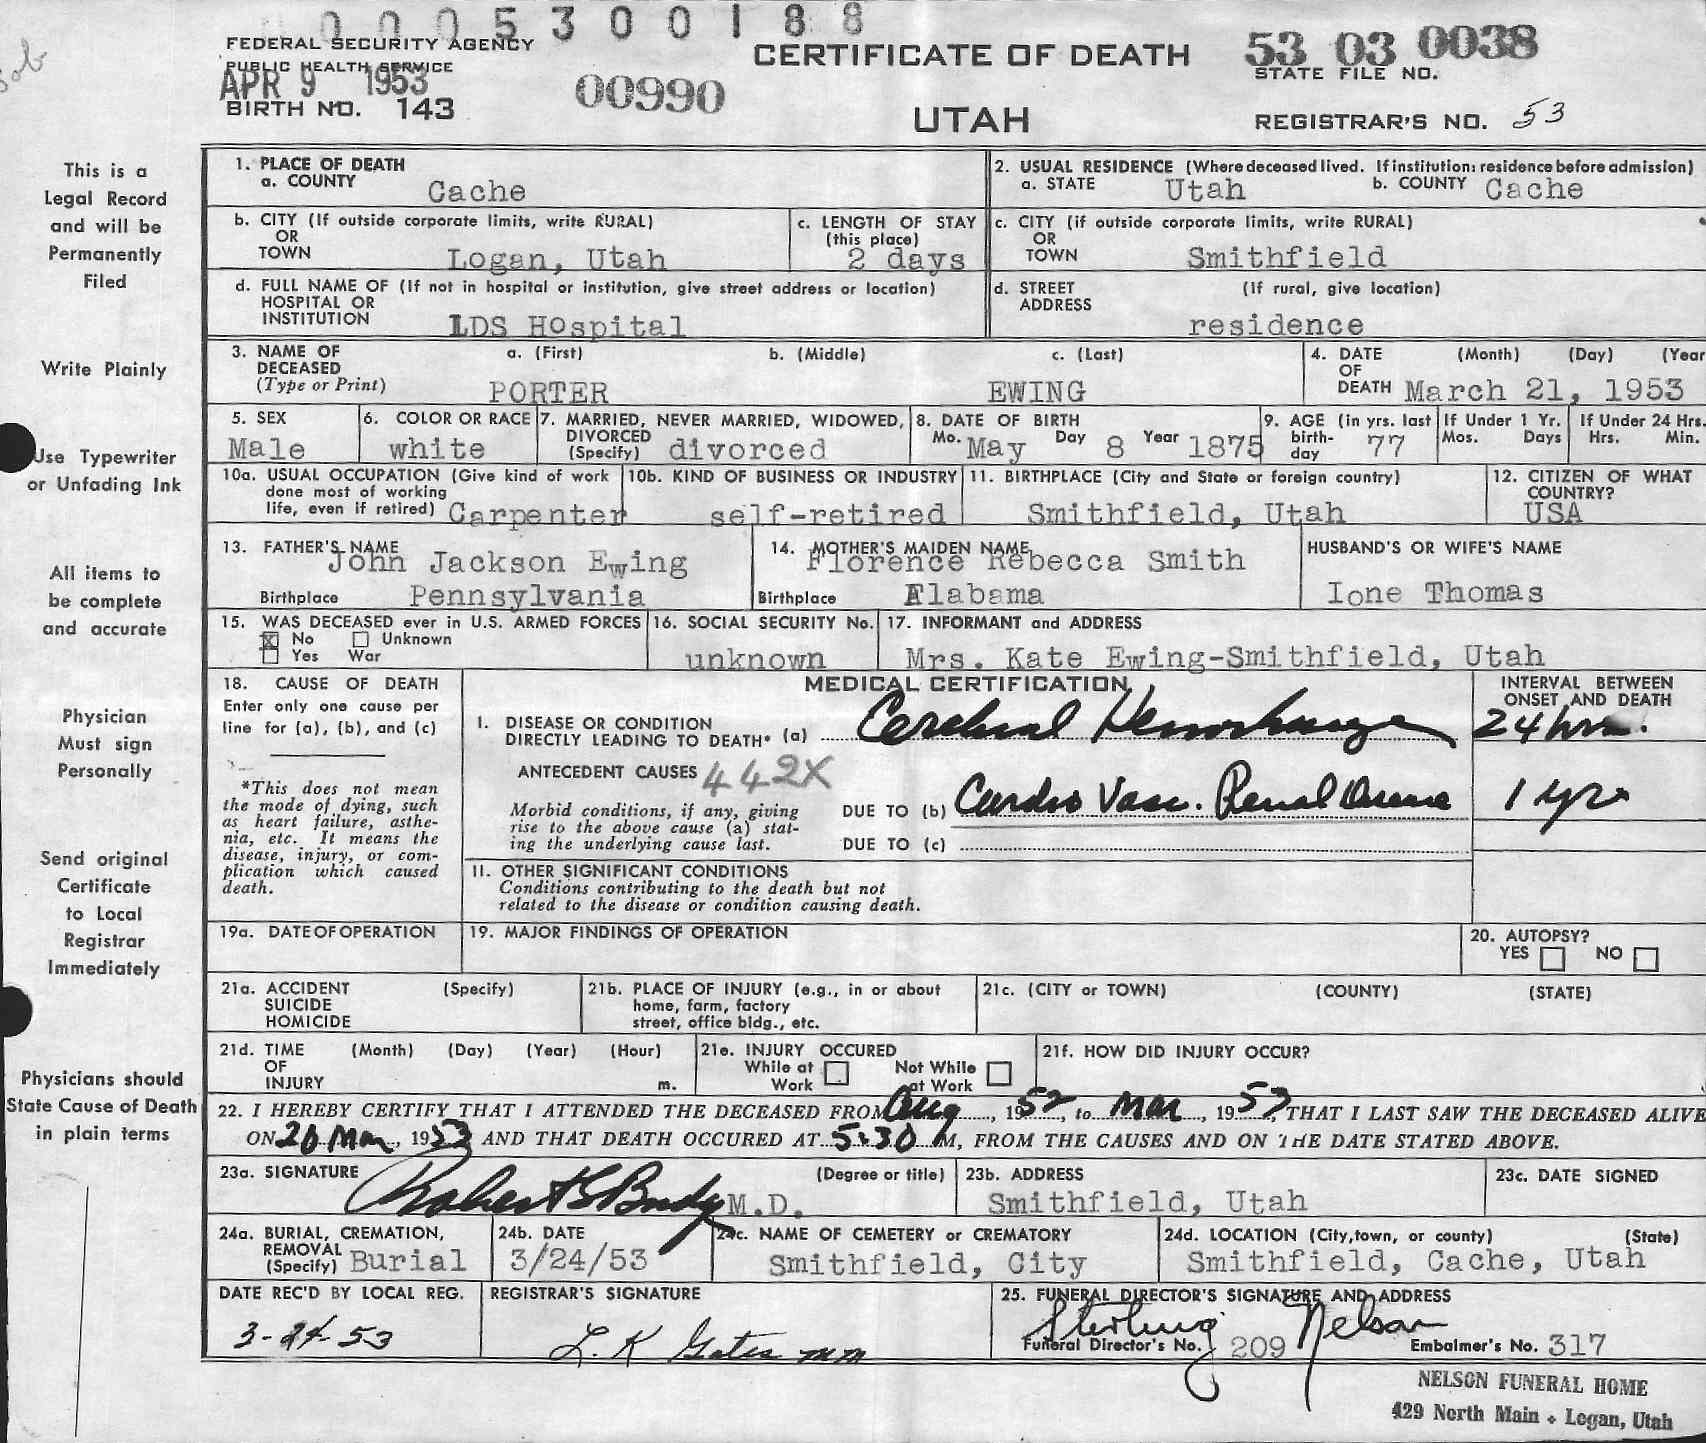 0005300188
FEDERAL SECURITY AGENCY
PUBLIC HEALTH SERVICE
APR 9 1953
BIRTH NO. 143
00990
CERTIFICATE OF DEATH
UTAH
53 03 0038
STATE FILE NO.
REGISTRAR'S NO. 53
This is a
Legal Record
and will be
Permanently
Filed
Write Plainly
Use Typewriter
or Unfading Ink
All items to
be complete
and accurate
Physician
Must sign
Personally
Send original
Certificate
to Local
Registrar
Immediately
Physicians should
State Cause of Death
in plain terms
1. PLACE OF DEATH
a. COUNTY Cache
2. USUAL RESIDENCE (Where deceased lived. If institution: residence before admission)
a. STATE Utah b. COUNTY Cache
b. CITY (If outside corporate limits, write RURAL)
OR
TOWN Logan, Utah
c. LENGTH OF STAY
(this place)
2 days
c. CITY (if outside corporate limits, write RURAL)
OR
TOWN Smithfield
d. FULL NAME OF (If not in hospital or institution, give street address or location)
HOSPITAL OR
INSTITUTION LDS Hospital
d. STREET (If rural, give location)
ADDRESS
residence
3. NAME OF a. (First) b. (Middle) c. (Last)
DECEASED
(Type or Print) PORTER EWING
4. DATE (Month) (Day) (Year
OF
DEATH March 21, 1953
5. SEX
Male
6. COLOR OR RACE
white
7. MARRIED, NEVER MARRIED, WIDOWED,
DIVORCED
(Specify) divorced
8. DATE OF BIRTH
Mo. May Day 8 Year 1875
9. AGE (in yrs. last
birth-
day 77
If Under 1 Yr.
Mos. Days
If Under 24 Hrs.
Hrs. Min.
10a. USUAL OCCUPATION (Give kind of work
done most of working
life, even if retired) Carpenter
10b. KIND OF BUSINESS OR INDUSTRY
self-retired
11. BIRTHPLACE (City and State or foreign country)
Smithfield, Utah
12. CITIZEN OF WHAT
COUNTRY?
USA
13. FATHER'S NAME
John Jackson Ewing
Birthplace Pennsylvania
14. MOTHER'S MAIDEN NAME
Florence Rebecca Smith
Birthplace Alabama
HUSBAND'S OR WIFE'S NAME
Ione Thomas
15. WAS DECEASED ever in U.S. ARMED FORCES
No Unknown
Yes War
16. SOCIAL SECURITY No.
unknown
17. INFORMANT and ADDRESS
Mrs. Kate Ewing-Smithfield, Utah
18. CAUSE OF DEATH
Enter only one cause per
line for (a), (b), and (c)
*This does not mean
the mode of dying, such
as heart failure, asthe-
nia, etc. It means the
disease, injury, or com-
plication which caused
death.
MEDICAL CERTIFICATION
INTERVAL BETWEEN
ONSET AND DEATH
I. DISEASE OR CONDITION
DIRECTLY LEADING TO DEATH* (a) Cerebral Hemorrhage 24 hrs.
ANTECEDENT CAUSES 442X
Morbid conditions, if any, giving
rise to the above cause (a) stat-
ing the underlying cause last.
DUE TO (b) Cardio Vasc. Renal Disease 1 yr
DUE TO (c)
II. OTHER SIGNIFICANT CONDITIONS
Conditions contributing to the death but not
related to the disease or condition causing death.
19a. DATE OF OPERATION
19. MAJOR FINDINGS OF OPERATION
20. AUTOPSY?
YES NO
21a. ACCIDENT (Specify)
SUICIDE
HOMICIDE
21b. PLACE OF INJURY (e.g., in or about
home, farm, factory
street, office bldg., etc.
21c. (CITY or TOWN) (COUNTY) (STATE)
21d. TIME (Month) (Day) (Year) (Hour)
OF
INJURY m.
21e. INJURY OCCURED
While at Not While
Work at Work
21f. HOW DID INJURY OCCUR?
22. I HEREBY CERTIFY THAT I ATTENDED THE DECEASED FROM Aug, 1952 to Mar, 1953 THAT I LAST SAW THE DECEASED ALIVE
ON 20 Mar, 1953 AND THAT DEATH OCCURED AT 5:30 M, FROM THE CAUSES AND ON THE DATE STATED ABOVE.
23a. SIGNATURE (Degree or title)
Robert S Budge M.D.
23b. ADDRESS
Smithfield, Utah
23c. DATE SIGNED
24a. BURIAL, CREMATION,
REMOVAL
(Specify) Burial
24b. DATE
3/24/53
24c. NAME OF CEMETERY or CREMATORY
Smithfield, City
24d. LOCATION (City, town, or county) (State)
Smithfield, Cache, Utah
DATE REC'D BY LOCAL REG.
3-24-53
REGISTRAR'S SIGNATURE
L. K Gates mm
25. FUNERAL DIRECTOR'S SIGNATURE AND ADDRESS
Sterling Nelson
Funeral Director's No. 209 Embalmer's No. 317
NELSON FUNERAL HOME
429 North Main • Logan, Utah